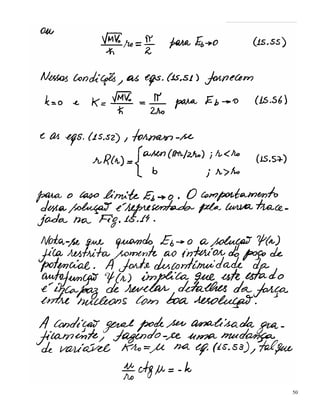 ou
√MV₀/ħ r₀ = π/2 para E_b→0 (15.55)
Nessas condições, as eqs. (15.51) fornecem
k=0 e K = √MV₀/ħ = π/2r₀ para E_b→0 (15.56)
e as eqs. (15.52), tornam-se
r R(r) = { a sen(πr/2r₀) ; r<r₀
b ; r>r₀ (15.57)
para o caso limite E_b→0. O comportamento
dessa solução é representado pela curva trace-
jada na Fig. 15.14.
Nota-se que quando E_b→0 a solução Ψ(r)
fica restrita somente ao interior do poço de
potencial. A forte descontinuidade da
autofunção Ψ(r) implica que este estado
é incapaz de revelar detalhes da força
entre núcleons com boa resolução.
A condição geral pode ser analisada gra-
ficamente, fazendo-se uma mudança
de variável Kr₀=μ na eq. (15.53), tal que
μ/r₀ ctg μ = -k
50